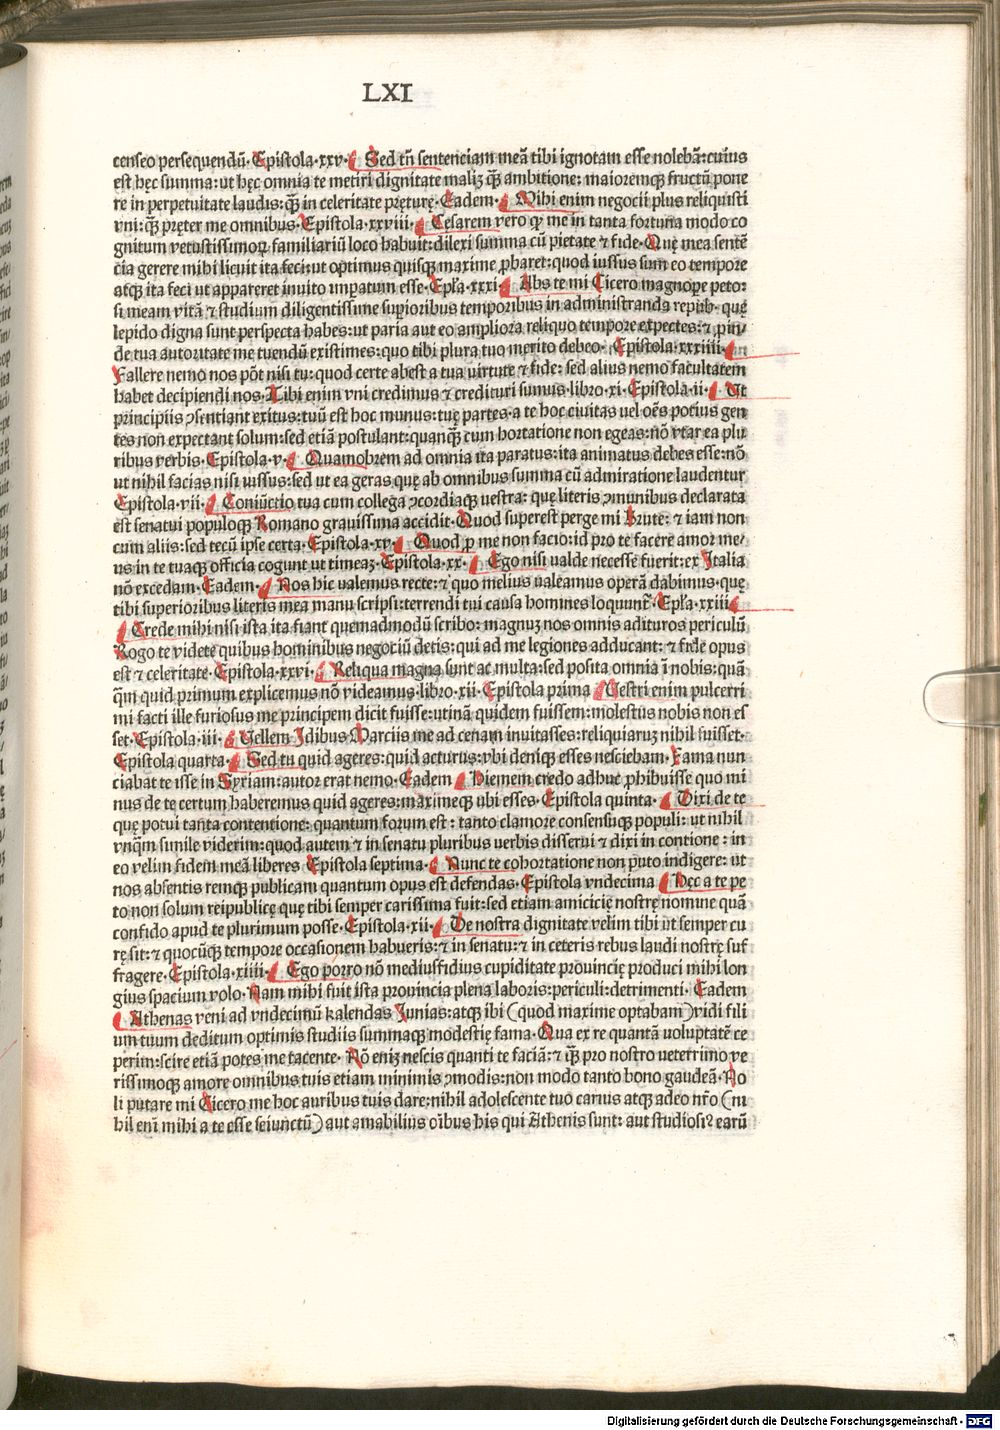 LXI
censeo persequendū. Epistola.xxv. Sed tñ sentenciam meā tibi ignotam esse nolebā: cuius
est hęc summa: ut hęc omnia te metiri dignitate maliꝫ q̃ꝫ ambitione: maioremqꝫ fructū pone
re in perpetuitate laudis: q̃ꝫ in celeritate pręturę. Eadem. Mihi enim negocii plus reliquisti
vni: q̃ꝫ pręter me omnibus. Epistola.xxviii. Cesarem vero qꝫ me in tanta fortuna modo co
gnitum vetustissimoꝝ familiariū loco habuit: dilexi summa cū pietate ⁊ fide. Quę mea sentē
cia gerere mihi licuit ita feci: ut optimus quisqꝫ maxime ꝓbaret: quod iussus sum eo tempore
atqꝫ ita feci ut appareret inuito imꝑatum esse. Epľa.xxxi. Abs te mi Cicero magnoꝑe peto:
si meam vitā ⁊ studium diligentissime suꝑioribus temporibus in administranda repub. quę
lepido digna sunt perspecta habes: ut paria aut eo ampliora reliquo tempore expectes: ⁊ ꝓin/
de tua autoritate me tuendū existimes: quo tibi plura tuo merito debeo. Epistola.xxxiiii.
Fallere nemo nos pōt nisi tu: quod certe abest a tua virtute ⁊ fide: sed alius nemo facultatem
habet decipiendi nos. Tibi enim vni credimus ⁊ credituri sumus. libro.xi. Epistola.ii. Ut
principiis ꝯsentiant exitus: tuū est hoc munus: tuę partes. a te hoc ciuitas uel oēs potius gen
tes non expectant solum: sed etiā postulant: quanq̃ꝫ cum hortatione non egeas: nō vtar ea plu
ribus verbis. Epistola.v. Quamobrem ad omnia ita paratus: ita animatus debes esse: nō
ut nihil facias nisi iussus: sed ut ea geras quę ab omnibus summa cū admiratione laudentur
Epistola.vii. Coniūctio tua cum collega ꝯcordiaqꝫ uestra: quę literis ꝯmunibus declarata
est senatui populoqꝫ Romano grauissima accidit. Quod superest perge mi Brute: ⁊ iam non
cum aliis: sed tecū ipse certa. Epistola.xv. Quod ꝑ me non facio: id pro te facere amor me/
us in te tuaqꝫ officia cogunt ut timeaꝫ. Epistola.xx. Ego nisi valde necesse fuerit: ex Italia
nō excedam. Eadem. Nos hic ualemus recte: ⁊ quo melius ualeamus operā dabimus. quę
tibi superioribus literis mea manu scripsi: terrendi tui causa homines loquunt̃. Epľa.xxiii
Crede mihi nisi ista ita fiant quemadmodū scribo: magnuꝫ nos omnis adituros periculū
Rogo te videte quibus hominibus negociū detis: qui ad me legiones adducant: ⁊ fide opus
est ⁊ celeritate. Epistola.xxvi. Reliqua magna sunt ac multa: sed posita omnia ī nobis: quā
q̃m quid primum explicemus nō videamus. libro.xii. Epistola prima Uestri enim pulcerri
mi facti ille furiosus me principem dicit fuisse: utinā quidem fuissem: molestus nobis non es
set. Epistola.iii. Vellem Idibus Marciis me ad cenam inuitasses: reliquiaruꝫ nihil fuisset.
Epistola quarta. Sed tu quid ageres: quid acturus: vbi deniqꝫ esses nesciebam. Fama nun
ciabat te isse in Syriam: autor erat nemo. Eadem Hiemem credo adhuc ꝓhibuisse quo mi
nus de te certum haberemus quid ageres: maximeqꝫ ubi esses. Epistola quinta. Dixi de te
quę potui tanta contentione: quantum forum est: tanto clamore consensuqꝫ populi: ut nihil
vnq̃m simile viderim: quod autem ⁊ in senatu pluribus uerbis disserui ⁊ dixi in contione: in
eo velim fidem meā liberes Epistola septima. Nunc te cohortatione non puto indigere: ut
nos absentis remqꝫ publicam quantum opus est defendas. Epistola vndecima Hęc a te pe
to non solum reipublicę quę tibi semper carissima fuit: sed etiam amicicię nostrę nomine quā
confido apud te plurimum posse. Epistola.xii. De nostra dignitate velim tibi ut semper cu
rę sit: ⁊ quocūqꝫ tempore occasionem habueris: ⁊ in senatu: ⁊ in ceteris rebus laudi nostrę suf
fragere. Epistola.xiiii. Ego porro nō mediusfidius cupiditate prouincię produci mihi lon
gius spacium volo. Nam mihi fuit ista prouincia plena laboris: periculi: detrimenti. Eadem
Athenas veni ad vndecimū kalendas Junias: atqꝫ ibi (quod maxime optabam) vidi fili
um tuum deditum optimis studiis summaqꝫ modestię fama. Qua ex re quantā voluptatē ce
perim: scire etiā potes me tacente. Nō eniꝫ nescis quanti te faciā: ⁊ q̃ꝫ pro nostro ueterrimo ve
rissimoqꝫ amore omnibus tuis etiam minimis ꝯmodis: non modo tanto bono gaudeā. No
li putare mi Cicero me hoc auribus tuis dare: nihil adolescente tuo carius atqꝫ adeo nr̄o (ni
hil enī mihi a te esse seiunctū) aut amabilius oībus his qui Athenis sunt: aut studiosiꝰ earū
Digitalisierung gefördert durch die Deutsche Forschungsgemeinschaft - DFG